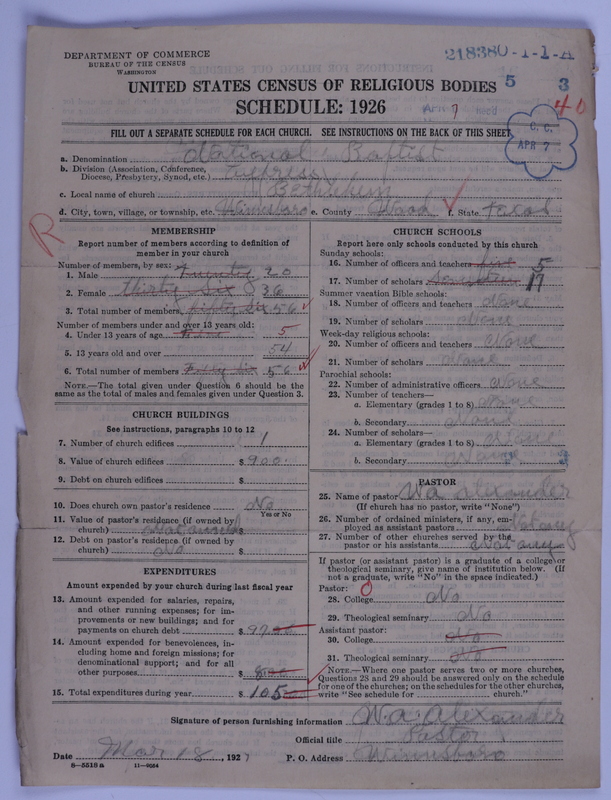 DEPARTMENT OF COMMERCE
BUREAU OF THE CENSUS
WASHINGTON
218380-1-1-A
UNITED STATES CENSUS OF RELIGIOUS BODIES 5 3
SCHEDULE: 1926
40
FILL OUT A SEPARATE SCHEDULE FOR EACH CHURCH. SEE INSTRUCTIONS ON THE BACK OF THIS SHEET
C. C.
APR 7
a. Denomination National Baptist
b. Division (Association, Conference, Diocese, Presbytery, Synod, etc.) Cypress
c. Local name of church Bethlehem
d. City, town, village, or township, etc. Winnsboro e. County Wood f. State Texas
R
MEMBERSHIP
Report number of members according to definition of
member in your church
Number of members, by sex:
1. Male Twenty 20
2. Female Thirty Six 36
3. Total number of members Fifty Six 56
Number of members under and over 13 years old:
4. Under 13 years of age 5
5. 13 years old and over 54
6. Total number of members Fifty Six 56
NOTE.—The total given under Question 6 should be the
same as the total of males and females given under Question 3.
CHURCH BUILDINGS
See instructions, paragraphs 10 to 12
7. Number of church edifices 1
8. Value of church edifices $ 900.
9. Debt on church edifices $
10. Does church own pastor's residence No
Yes or No
11. Value of pastor's residence (if owned by
church) $
12. Debt on pastor's residence (if owned by
church) No $
EXPENDITURES
Amount expended by your church during last fiscal year
13. Amount expended for salaries, repairs,
and other running expenses; for im-
provements or new buildings; and for
payments on church debt $ 97.00
14. Amount expended for benevolences, in-
cluding home and foreign missions; for
denominational support; and for all
other purposes $ 8.00
15. Total expenditures during year $ 105
CHURCH SCHOOLS
Report here only schools conducted by this church
Sunday schools:
16. Number of officers and teachers five 5
17. Number of scholars 17
Summer vacation Bible schools:
18. Number of officers and teachers None
19. Number of scholars None
Week-day religious schools:
20. Number of officers and teachers None
21. Number of scholars None
Parochial schools:
22. Number of administrative officers None
23. Number of teachers—
a. Elementary (grades 1 to 8) None
b. Secondary None
24. Number of scholars—
a. Elementary (grades 1 to 8) None
b. Secondary None
PASTOR
25. Name of pastor W. a. Alexander
(If church has no pastor, write "None")
26. Number of ordained ministers, if any, em-
ployed as assistant pastors Not any
27. Number of other churches served by the
pastor or his assistants Not any
If pastor (or assistant pastor) is a graduate of a college or
theological seminary, give name of institution below. (If
not a graduate, write "No" in the space indicated.)
Pastor:
28. College No
29. Theological seminary No
Assistant pastor:
30. College No
31. Theological seminary No
NOTE.—Where one pastor serves two or more churches,
Questions 28 and 29 should be answered only on the schedule
for one of the churches; on the schedules for the other churches,
write "See schedule for church."
Signature of person furnishing information W. a. Alexander
Official title Pastor
Date Mar 18, 1927 P. O. Address Winnsboro
8—5518a 11—9054